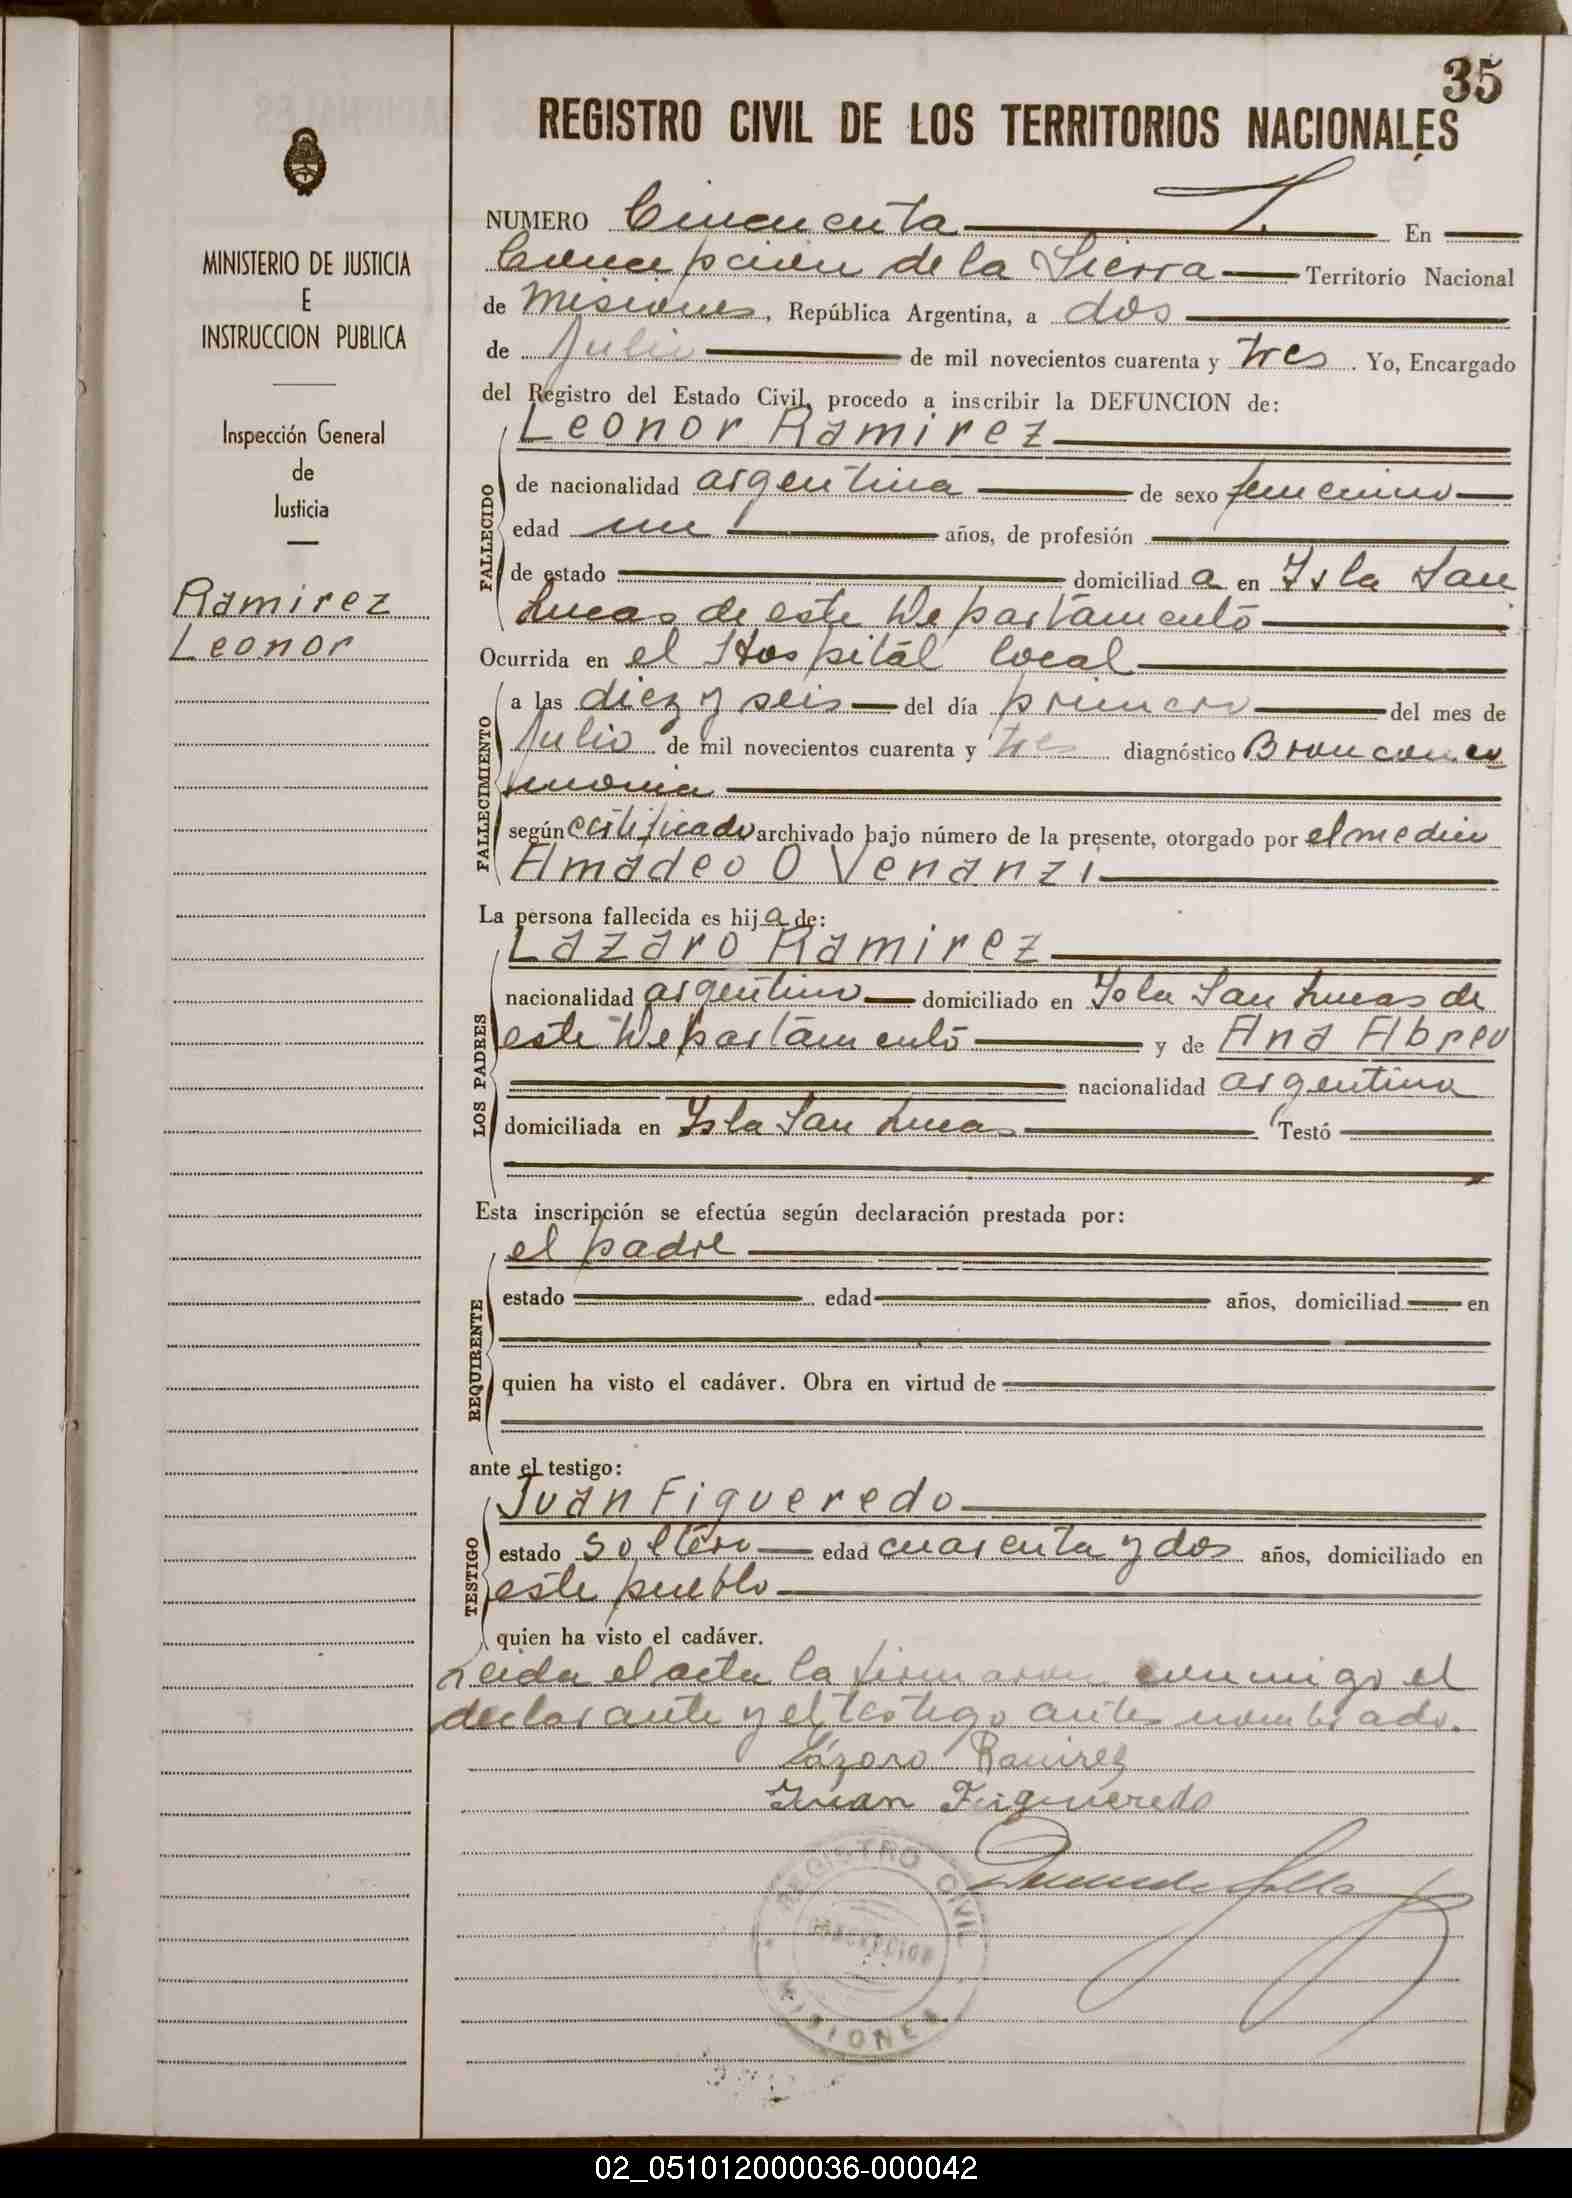 35
REGISTRO CIVIL DE LOS TERRITORIOS NACIONALES
MINISTERIO DE JUSTICIA
E
INSTRUCCION PUBLICA
Inspección General
de
Justicia
Ramirez
Leonor
NUMERO Cincuenta En
Concepcion de la Sierra Territorio Nacional
de Misiones, República Argentina, a dos
de Julio de mil novecientos cuarenta y tres. Yo, Encargado
del Registro del Estado Civil, procedo a inscribir la DEFUNCION de:
FALLECIDO
Leonor Ramirez
de nacionalidad argentina de sexo femenino
edad un años, de profesión
de estado domiciliada en Isla San
Lucas de este Departamento
Ocurrida en el Hospital local
FALLECIMIENTO
a las diez y seis del día primero del mes de
Julio de mil novecientos cuarenta y tres diagnóstico Bronconeu
monia
según certificado archivado bajo número de la presente, otorgado por el medico
Amadeo O Venanzi
La persona fallecida es hija de:
LOS PADRES
Lazaro Ramirez
nacionalidad argentino domiciliado en Isla San Lucas de
este Departamento y de Ana Abreu
nacionalidad argentina
domiciliada en Isla San Lucas Testó
Esta inscripción se efectúa según declaración prestada por:
REQUIRENTE
el padre
estado edad años, domiciliad en
quien ha visto el cadáver. Obra en virtud de
ante el testigo:
TESTIGO
Juan Figueredo
estado soltero edad cuarenta y dos años, domiciliado en
este pueblo
quien ha visto el cadáver.
Leida el acta la firmaron conmigo el
declarante y el testigo antes nombrado.
Lázaro Ramirez
Juan Figueredo
REGISTRO CIVIL
MISIONES
02_051012000036-000042